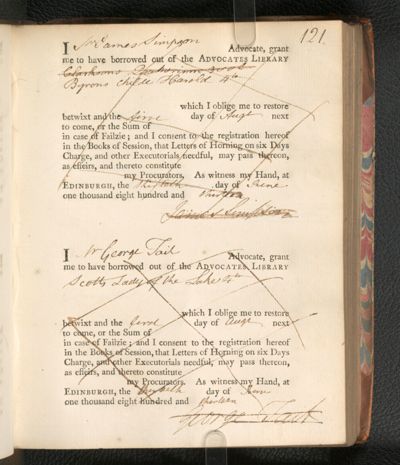 121.
I Mr James Simpson Advocate, grant
me to have borrowed out of the ADVOCATES LIBRARY
Byrons Childe Harold 4to
which I oblige me to restore
betwixt and the first day of Augt next
to come, or the Sum of
in case of Failzie; and I consent to the registration hereof
in the Books of Session, that Letters of Horning on six Days
Charge, and other Executorials needful, may pass thereon,
as effeirs, and thereto constitute
my Procurators. As witness my Hand, at
EDINBURGH, the thirtieth day of June
one thousand eight hundred and thirteen
James Simpson
I Mr George Tait Advocate, grant
me to have borrowed out of the ADVOCATES LIBRARY
Scotts Lady of the Lake 4to
which I oblige me to restore
betwixt and the first day of Augt next
to come, or the Sum of
in case of Failzie; and I consent to the registration hereof
in the Books of Session, that Letters of Horning on six Days
Charge, and other Executorials needful, may pass thereon,
as effeirs, and thereto constitute
my Procurators. As witness my Hand, at
EDINBURGH, the thirtieth day of June
one thousand eight hundred and thirteen
George Tait